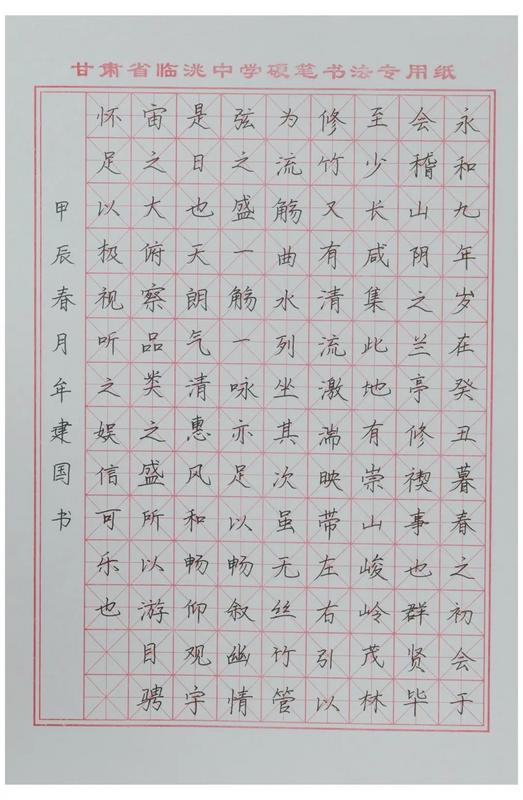 甘肃省临洮中学硬笔书法专用纸
永和九年岁在癸丑暮春之初会于
会稽山阴之兰亭修禊事也群贤毕
至少长咸集此地有崇山峻岭茂林
修竹又有清流激湍映带左右引以
为流觞曲水列坐其次虽无丝竹管
弦之盛一觞一咏亦足以畅叙幽情
是日也天朗气清惠风和畅仰观宇
宙之大俯察品类之盛所以游目骋
怀足以极视听之娱信可乐也
甲辰春月牟建国书